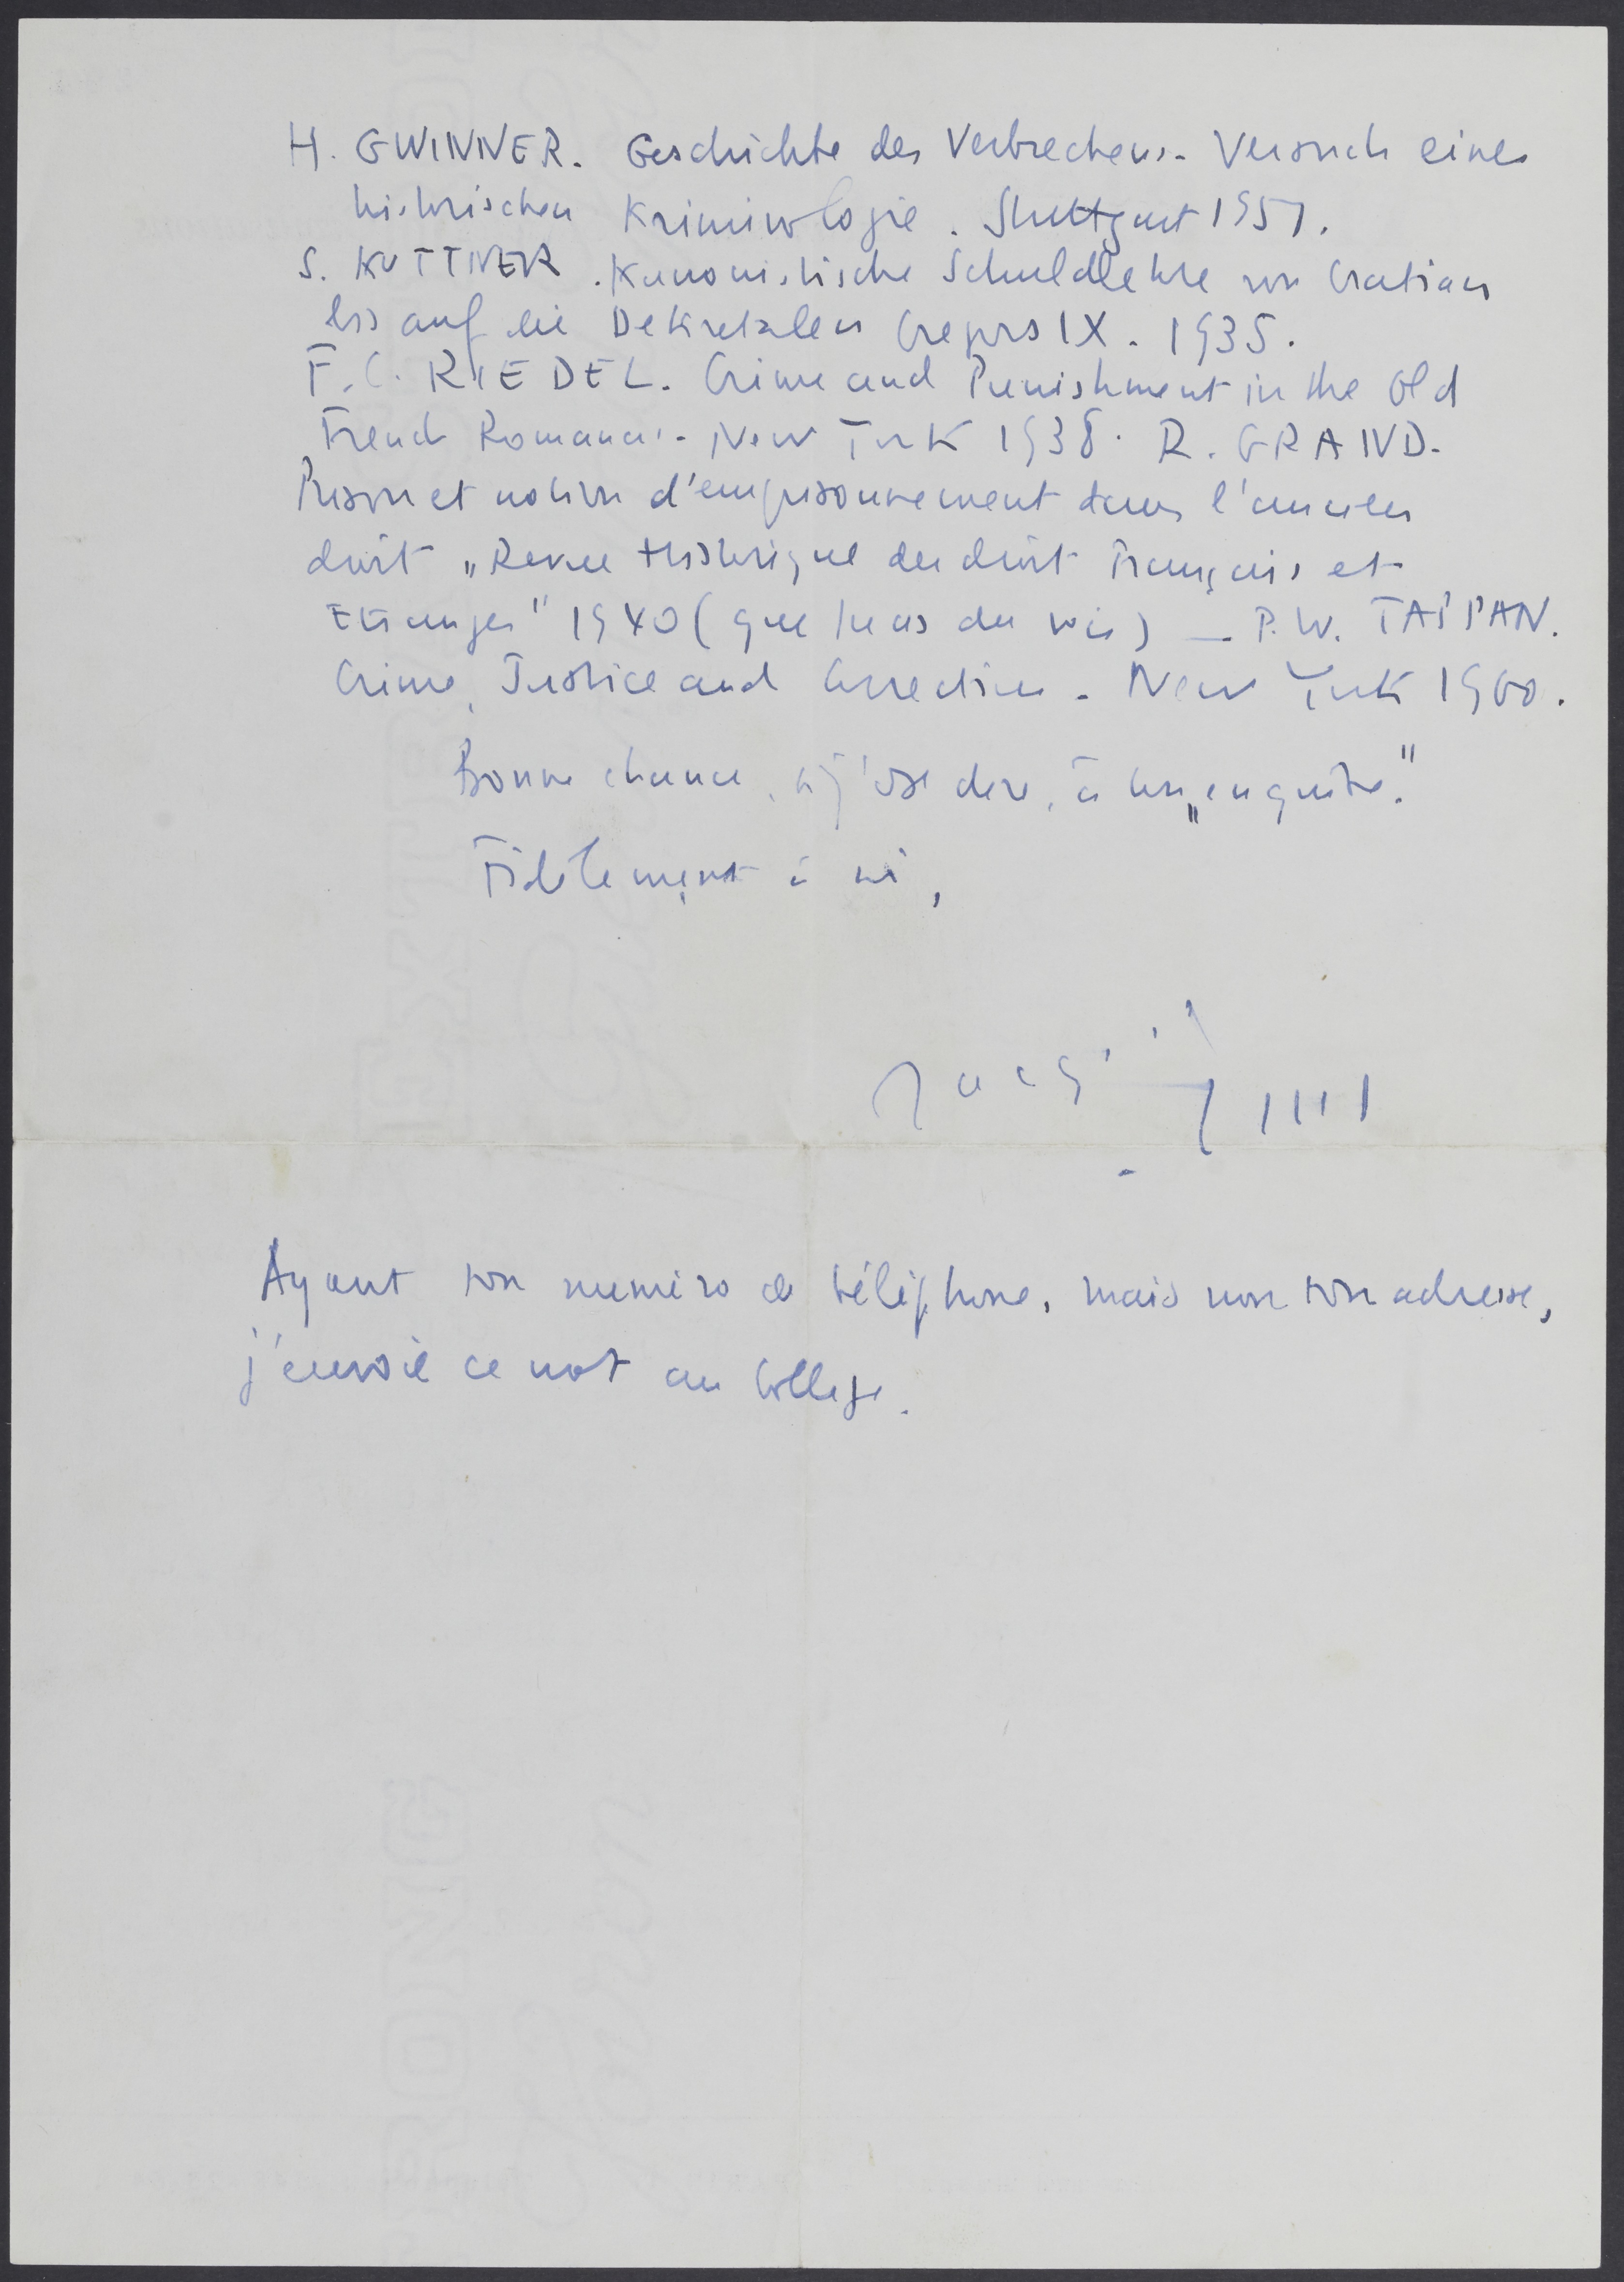 H. GWINNER. Geschichte des Verbrechens. Versuch einer
historischen Kriminologie. Stuttgart 1951.
S. KUTTNER. Kanonistische Schuldlehre von Gratian
bis auf die Dekretalen Gregors IX. 1935.
F.C. RIEDEL. Crime and Punishment in the Old
French Romances. New York 1938. R. GRAND.
Prison et notion d'emprisonnement dans l'ancien
droit "Revue Historique du droit Français et
Etranger" 1940 (que tu as dû voir) — P.W. TAPPAN.
Crime, Justice and Correction. New York 1960.
Bonne chance, si j'ose dire, à ton "enquête."
Fidèlement à toi,
Ayant ton numéro de téléphone, mais non ton adresse,
j'envoie ce mot au Collège.